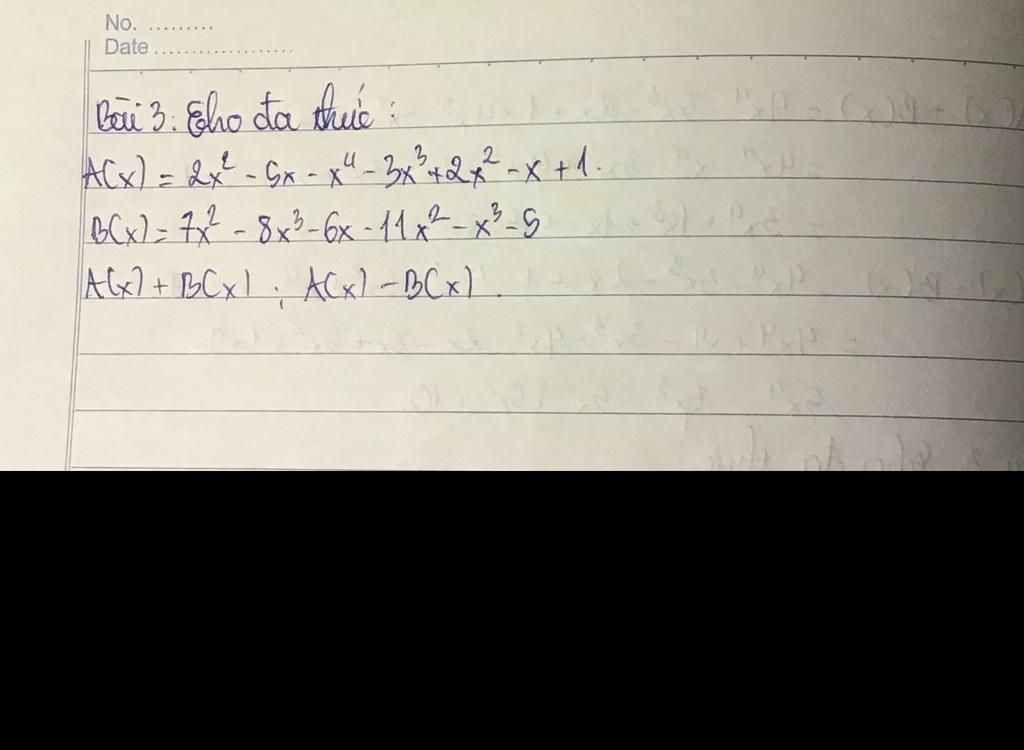 No. .........
Date ...................
Bài 3: Cho đa thức:
A(x) = 2x² - 5x - x⁴ - 3x³ + 2x² - x + 1.
B(x) = 7x² - 8x³ - 6x - 11x² - x³ - 5
A(x) + B(x) ; A(x) - B(x).